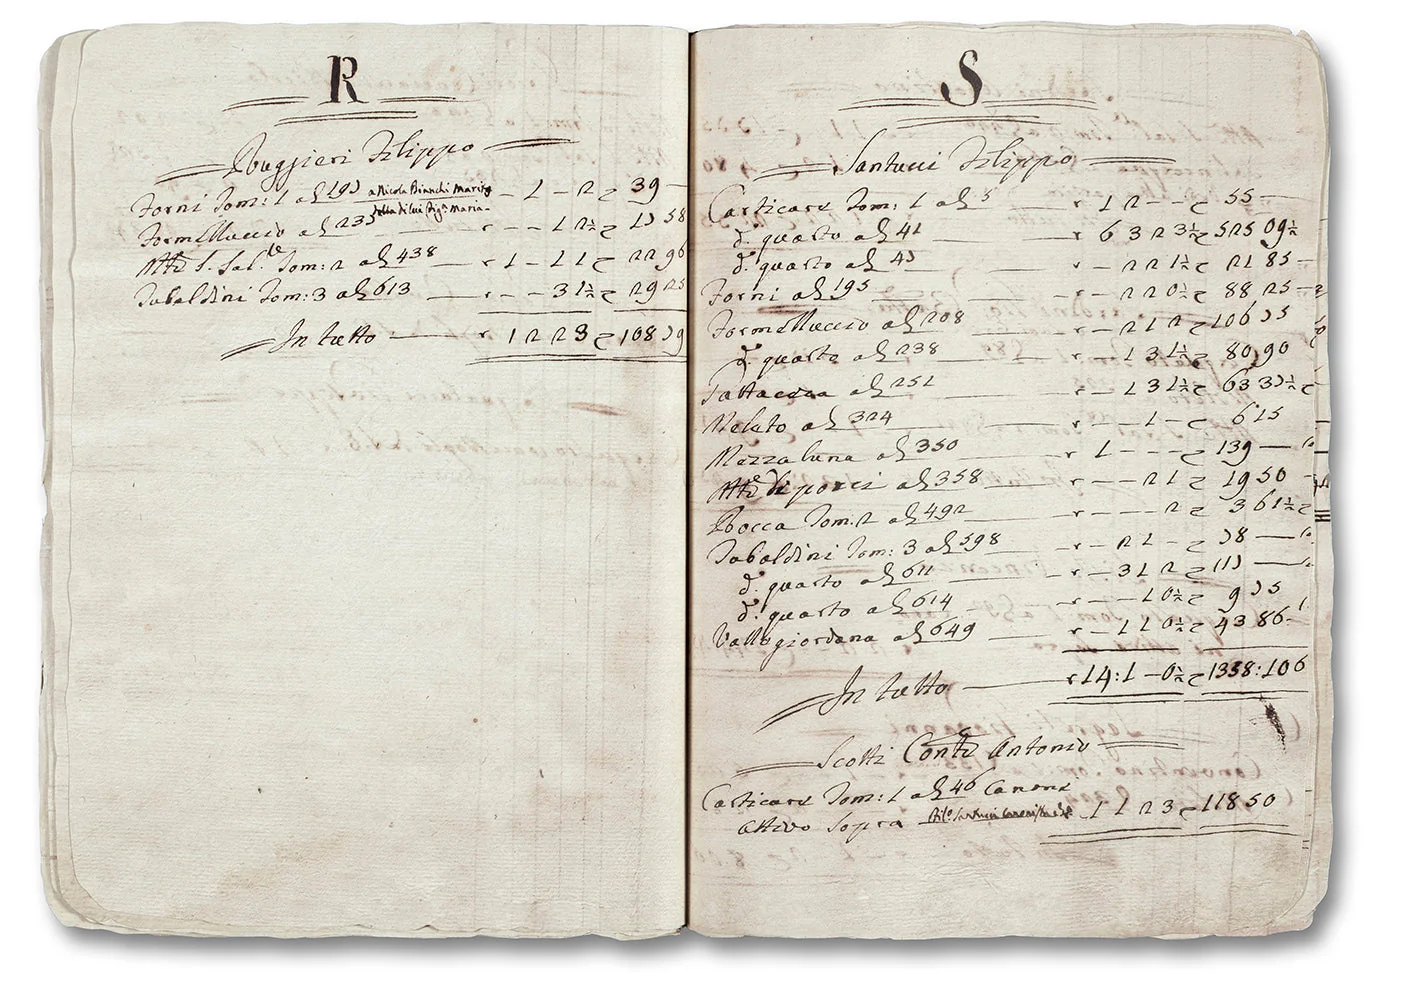 R
Ruggieri Filippo
Forni Tom: 1 al 195 a Nicola Bianchi Marito - 1 - 2 39 -
della di lui Sig.ª Maria -
Formelluccio al 235 r - - 1 2½
r 1 - 1 1 22 96
Tom: 2 al 438
Tabaldini Tom: 3 al 613 r - - 3 1½ 29 25
In tutto r 1 2 2 3 108
S
Santucci Filippo
Carticara Tom: 1 al 5 r 1 2 - - 55 -
d.º quarto al 41 r 6 3 2 3½ 525 09½
d.º quarto al 45 r - 2 2 1½ 21 85 -
Forni al 195 r - 2 2 0½ 88 25 -
Formelluccio al 208 r - 2 1 2
d.º quarto al 238 r - 1 3 1½ 80 90
al 251 r - 1 3 1½
Meleto al 324 r - - 1 - 6 15
Mezza luna al 350 r 1 - - - 139 -
al 358 r - - 2 1 19 50
Rocca Tom: 2 al 492 r - - - 2 3 61½
Tabaldini Tom: 3 al 598 r - 2 1 -
d.º quarto al 611 r - 3 1 2
d.º quarto al 614 r - - 1 0½
Vallegiordana al 649 r - 1 1 0½ 43 86 -
In tutto r 14:1 - 0½ 1358:106
Scotti Conte Antonio
Carticara Tom: 1 al 46 Canone
attivo sopra 1 1 2 3 118 50